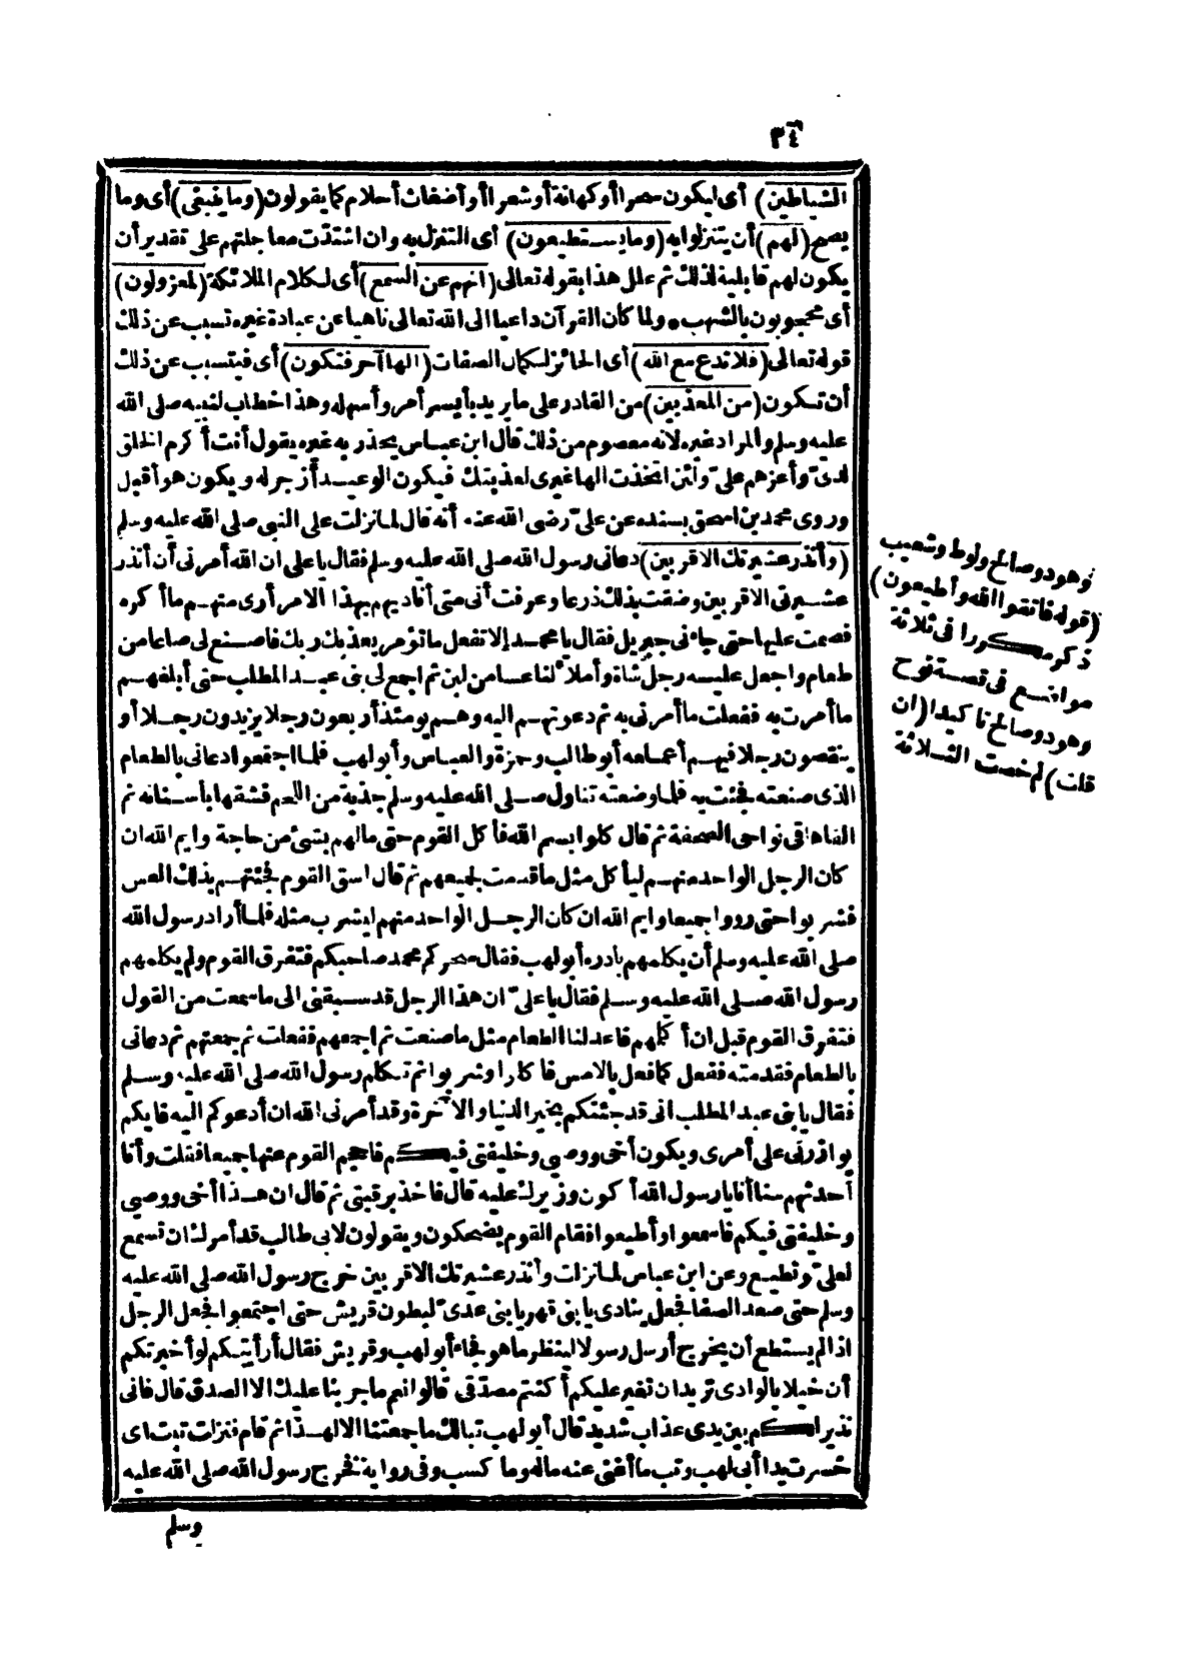 ٣٤
الشياطين) أى ليكون سحرا أو كهانة أو شعرا أو أضغاث أحلام كما يقولون (وما ينبغى) أى وما
يصح (لهم) أن يتنزلوا به (وما يستطيعون) أى التنزل به وان اشتدّت معاجلتهم على تقدير أن
يكون لهم قابلية لذلك ثم علل هذا بقوله تعالى (انهم عن السمع) أى لكلام الملائكة (لمعزولون)
أى محجوبون بالشهب • ولما كان القرآن داعيا الى الله تعالى ناهيا عن عبادة غيره تسبب عن ذلك
قوله تعالى (فلا تدع مع الله) أى الحائز لكمال الصفات (الها آخر فتكون) أى فيتسبب عن ذلك
أن تكون (من المعذبين) من القادر على ما يريد بأيسر أمر وأسهله وهذا خطاب لنبيه صلى الله
عليه وسلم والمراد غيره لانه معصوم من ذلك قال ابن عباس يحذر به غيره يقول أنت أكرم الخلق
لدىّ وأعزهم علىّ ولئن اتخذت الها غيرى لعذبتك فيكون الوعيد أزجر له ويكون هو أقبل
وروى محمد بن اسحق بسنده عن علىّ رضى الله عنه أنه قال لما نزلت على النبى صلى الله عليه وسلم
(وأنذر عشيرتك الاقربين) دعانى رسول الله صلى الله عليه وسلم فقال يا على ان الله أمرنى أن أنذر
عشيرتى الاقربين وضقت بذلك ذرعا وعرفت أنى متى أناديهم بهذا الامر أرى منهم ما أكره
فصمت عليها حتى جاءنى جبريل فقال يا محمد إلا تفعل ما تؤمر يعذبك ربك فاصنع لى صاعا من
طعام واجعل عليه رجل شاة وأملأ لنا عسا من لبن ثم اجمع لى بنى عبد المطلب حتى أبلغهم
ما أمرت به ففعلت ما أمرنى به ثم دعوتهم اليه وهم يومئذ أربعون رجلا يزيدون رجلا أو
ينقصون رجلا فيهم أعمامه أبو طالب وحمزة والعباس وأبو لهب فلما اجتمعوا دعانى بالطعام
الذى صنعته فجئت به فلما وضعته تناول صلى الله عليه وسلم جذبة من اللحم فشقها بأسنانه ثم
القاها فى نواحى الصحفة ثم قال كلوا بسم الله فأكل القوم حتى مالهم بشئ من حاجة وايم الله ان
كان الرجل الواحد منهم ليأكل مثل ما قدمت لجميعهم ثم قال اسق القوم فجئتهم بذلك العس
فشربوا حتى رووا جميعا وايم الله ان كان الرجل الواحد منهم ليشرب مثله فلما أراد رسول الله
صلى الله عليه وسلم أن يكلمهم بادره أبو لهب فقال سحركم محمد صاحبكم فتفرق القوم ولم يكلمهم
رسول الله صلى الله عليه وسلم فقال يا علىّ ان هذا الرجل قد سبقنى الى ما سمعت من القول
فتفرق القوم قبل ان أكلمهم فاعد لنا الطعام مثل ما صنعت ثم اجمعهم ففعلت ثم جمعتهم ثم دعانى
بالطعام فقدمته ففعل كما فعل بالامس فاكلوا وشربوا ثم تكلم رسول الله صلى الله عليه وسلم
فقال يا بنى عبد المطلب انى قد جئتكم بخير الدنيا والآخرة وقد أمرنى الله ان أدعوكم اليه فايكم
يوازرنى على أمرى ويكون أخى ووصيى وخليفتى فيكم فاحجم القوم عنها جميعا فقلت وأنا
أحدثهم سنا أنا يا رسول الله أكون وزيرك عليه قال فاخذ برقبتى ثم قال ان هذا أخى ووصيى
وخليفتى فيكم فاسمعوا وأطيعوا فقام القوم يضحكون ويقولون لابى طالب قد أمرك ان تسمع
لعلىّ وتطيع وعن ابن عباس لما نزلت وأنذر عشيرتك الاقربين خرج رسول الله صلى الله عليه
وسلم حتى صعد الصفا فجعل ينادى يا بنى فهر يا بنى عدىّ لبطون قريش حتى اجتمعوا فجعل الرجل
اذا لم يستطع أن يخرج أرسل رسولا لينظر ما هو فجاء أبو لهب وقريش فقال أرأيتكم لو أخبرتكم
أن خيلا بالوادى تريد ان تغير عليكم أكنتم مصدّقى قالوا نعم ما جربنا عليك الا الصدق قال فانى
نذير لكم بين يدى عذاب شديد قال أبو لهب تبا لك ما جمعتنا الا لهذا ثم قام فنزلت تبت اى
خسرت يدا أبى لهب وتب ما أغنى عنه ماله وما كسب وفى رواية فخرج رسول الله صلى الله عليه
وسلم
وهود وصالح ولوط وشعيب
(قوله فاتقوا الله وأطيعون)
ذكر مكررا فى ثلاثة
مواضع فى قصة نوح
وهود وصالح تاكيدا (ان
قلت) لم خصت الثلاثة